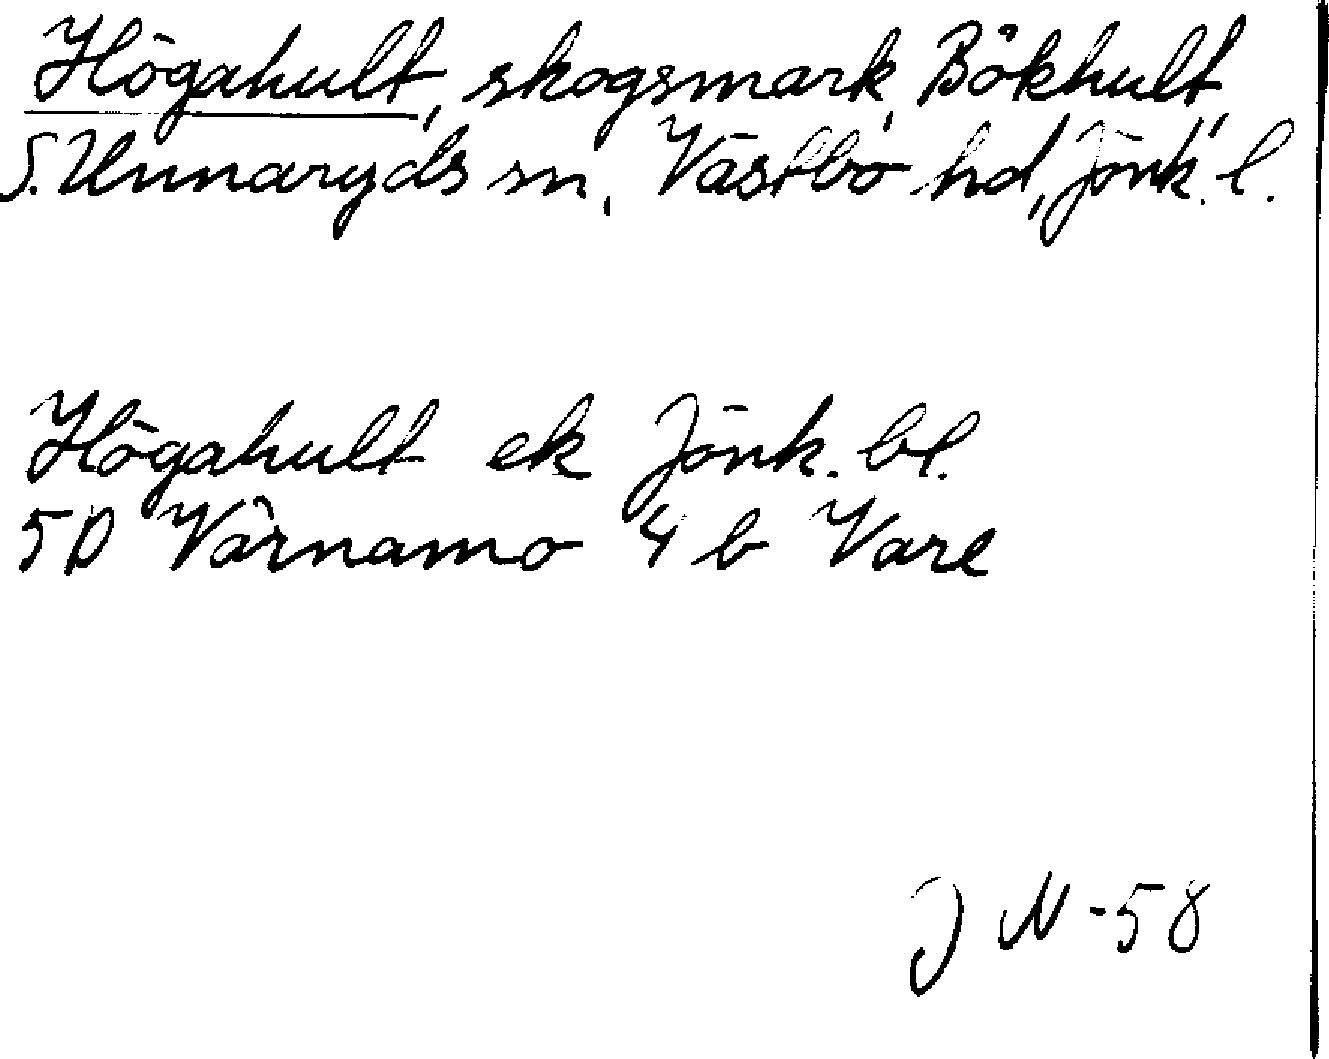 Högahult, skogsmark, Bökhult,
S. Unnaryds sn, Västbo hd, Jönk. l.
Högahult ek Jönk. bl.
5D Värnamo 4 b Vare
J N -58